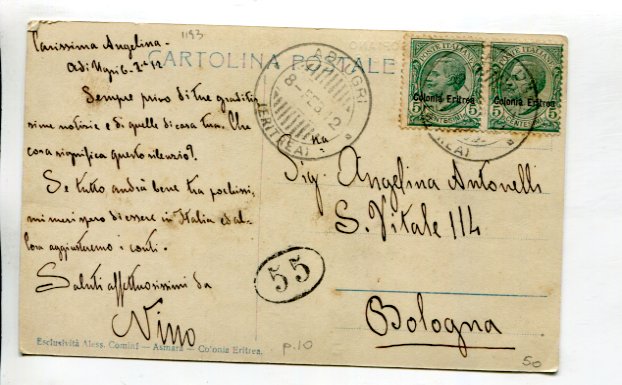 1193
CARTOLINA POSTALE
Carissima Angelina -
Adi Ugri 6-2-12
Sempre privo di tue graditis
sime notizie e di quelle di casa tua. Che
cosa significa questo silenzio?
Se tutto andrà bene tra pochissi,
mi mesi spero di essere in Italia ed al,
lora aggiusteremo i conti.
Saluti affettuosissimi da
Nino
Esclusività Aless. Comini — Asmara — Colonia Eritrea.
ADI UGRI
8 - FEB 12
(ERITREA)
POSTE ITALIANE
Colonia Eritrea
5 CENTESIMI 5
POSTE ITALIANE
Colonia Eritrea
5 CENTESIMI 5
Sig.na Angelina Antonelli
S. Vitale 114
Bologna
55
p.10
50